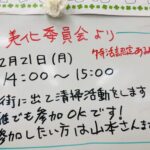 美化委員会より
特活認定あり
2月21日(月)
14:00〜15:00
街に出て清掃活動をします
誰でも参加OKです!
参加したい方は山本さんま